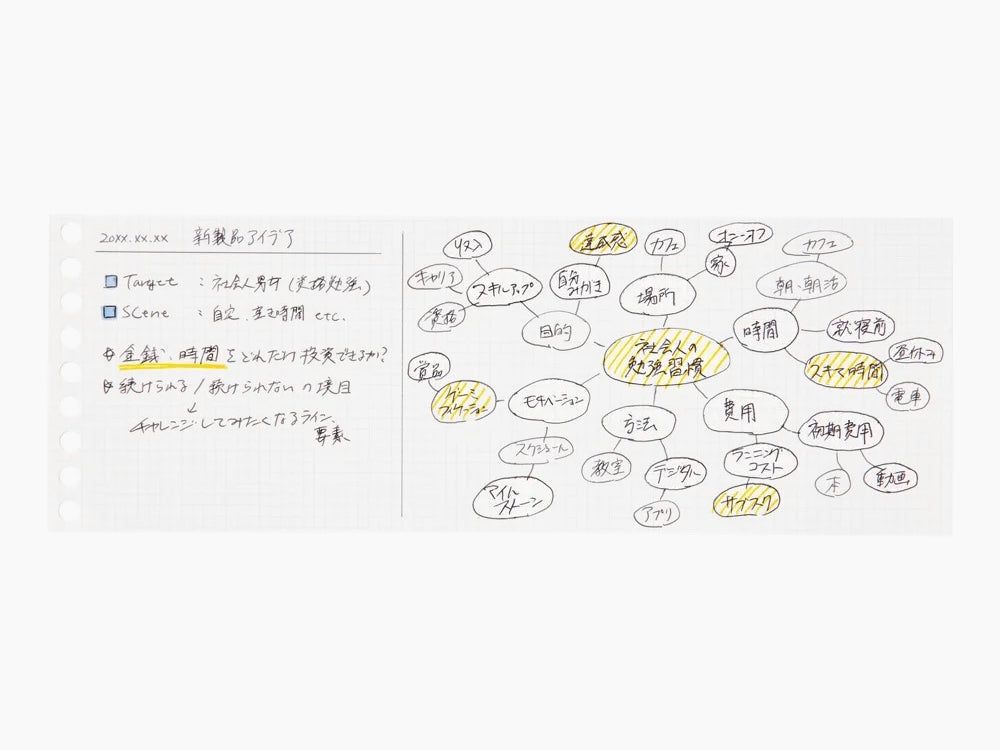 20xx.xx.xx 新製品アイデア
Target : 社会人男女(資格勉強)
Scene : 自宅、空き時間 etc.
金銭、時間をどれだけ投資できるか?
続けられる/続けられないの境目
チャレンジしてみたくなるライン、
要素
収入
キャリア
資格
スキルアップ
達成感
自分
みがき
目的
カフェ
オン・オフ
家
場所
カフェ
朝・朝活
時間
就寝前
昼休み
スキマ時間
電車
社会人の
勉強習慣
賞品
ゲーミ
フィケーション
モチベーション
スケジュール
マイル
ストーン
方法
教室
デジタル
アプリ
費用
ランニング
コスト
サブスク
初期費用
本
動画